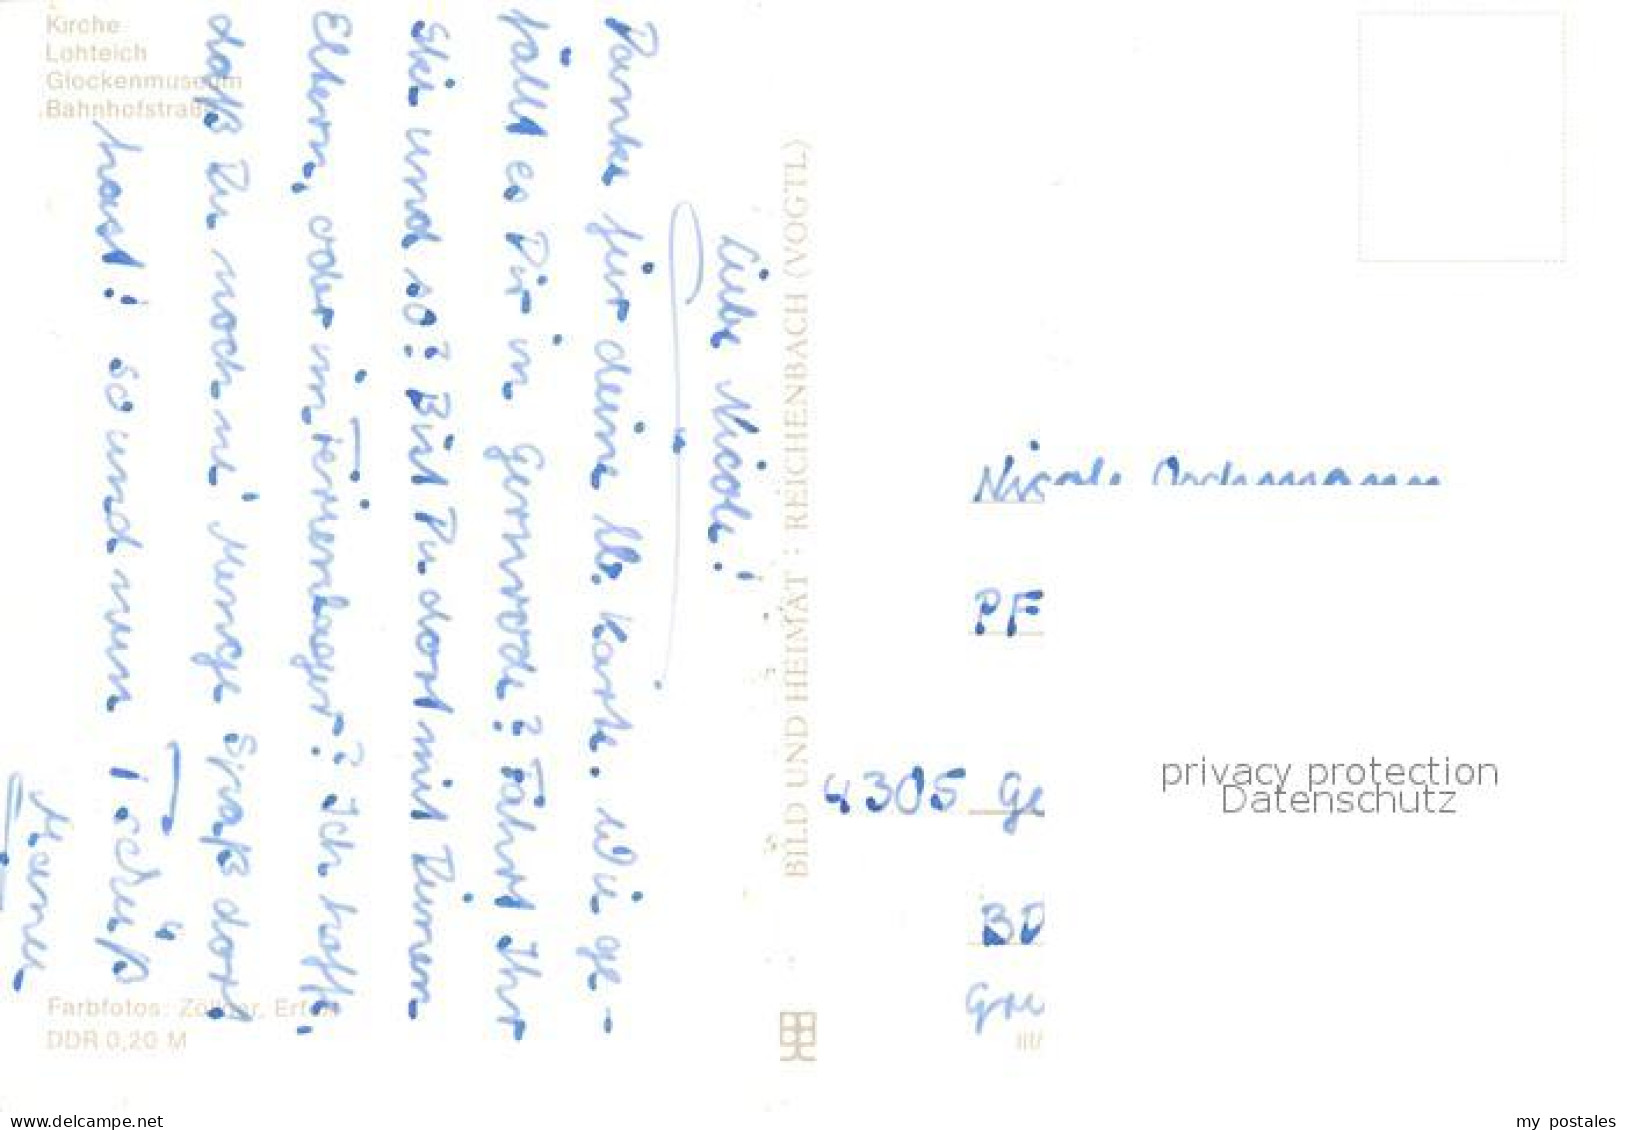 Kirche
Lohteich
Glockenmuseum
Bahnhofstraße
Liebe Nicole!
Danke für deine lb. Karte. Wie ge-
fällt es Dir in Gernrode? Fährst Ihr
Ski und so? Bist Du dort mit Deinen
Eltern, oder im Ferienlager? Ich hoffe,
daß Du noch ne' Menge Spaß dort
hast! So und nun Tschüß
Farbfotos: Zöllner, Erfurt
DDR 0,20 M
BILD UND HEIMAT · REICHENBACH (VOGTL)
Nicole
PF
4305 Ge
BD
III/
privacy protection
Datenschutz
www.delcampe.net
my_postales